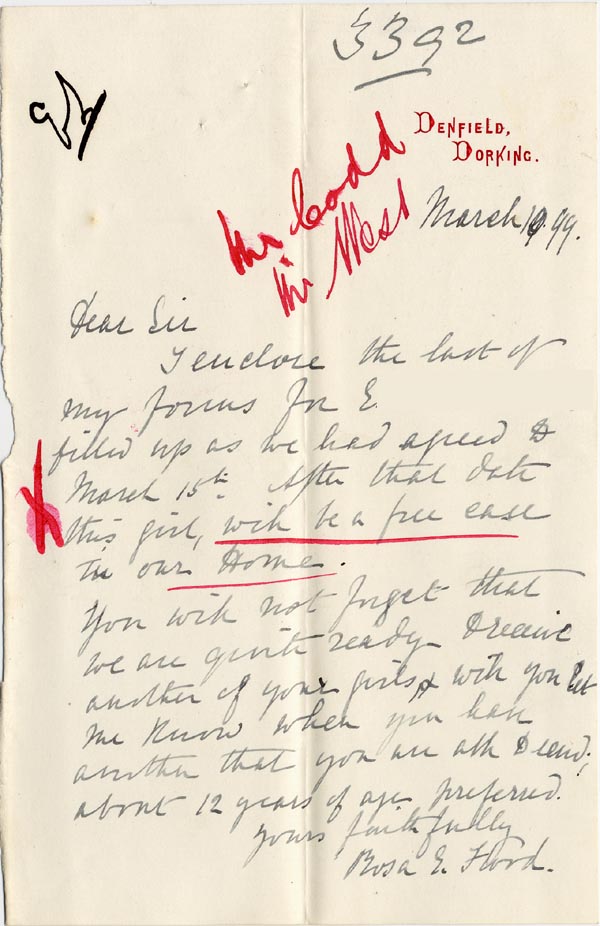 3392
DENFIELD,
DORKING.
Mr Codd
Mr West
March 10. 99.
Dear Sir
I enclose the last of
my forms for E.
filled up as we had agreed to
March 15th. After that date
this girl, will be a free case
in our Home.
You will not forget that
we are quite ready to receive
another of your girls, & will you let
me know when you have
another that you are able to send;
about 12 years of age preferred.
Yours faithfully
Rosa E. Flood.